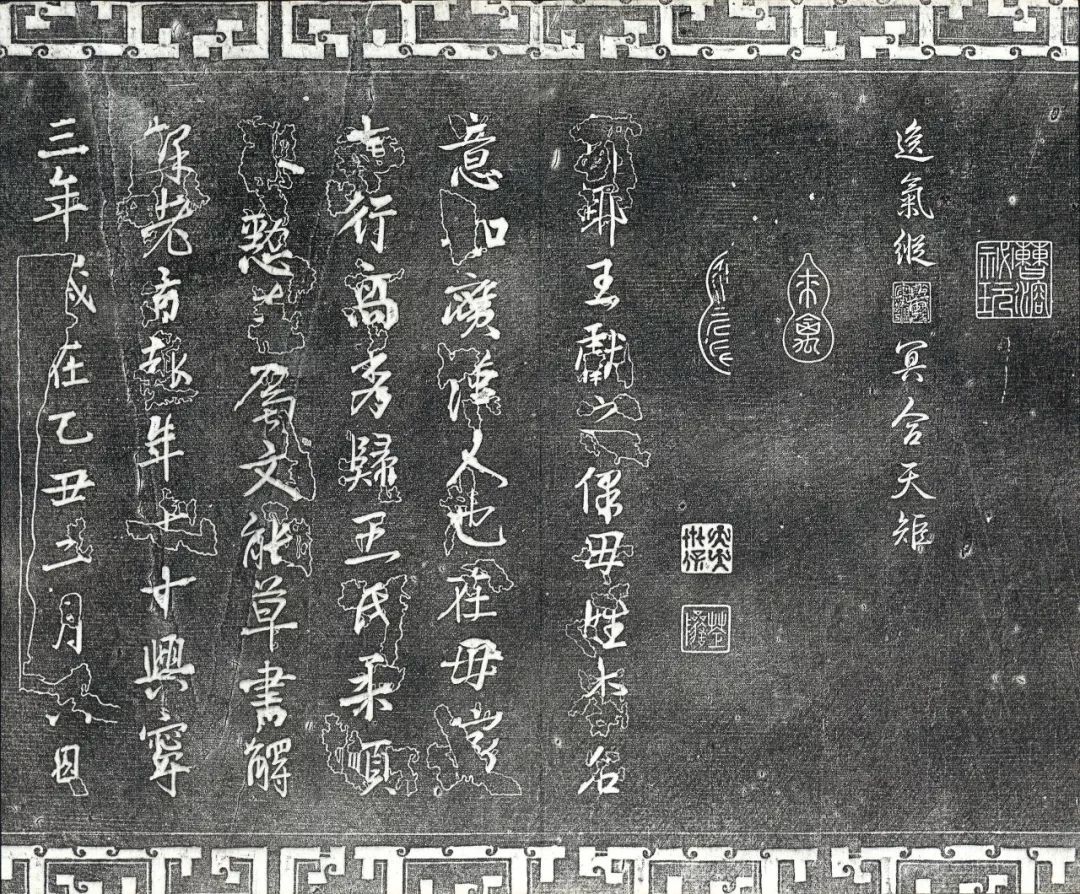 曹溶祕玩
逸氣縱冥合天矩
朱禽
琅耶王獻之保母姓李名
意如廣漢人也在母家
志行高秀歸王氏柔順
恭懃善屬文能草書解
釋老旨趣年七十興寧
三年歲在乙丑二月六日